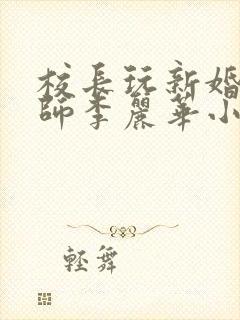 校長玩新婚
師李麗華小
輕舞